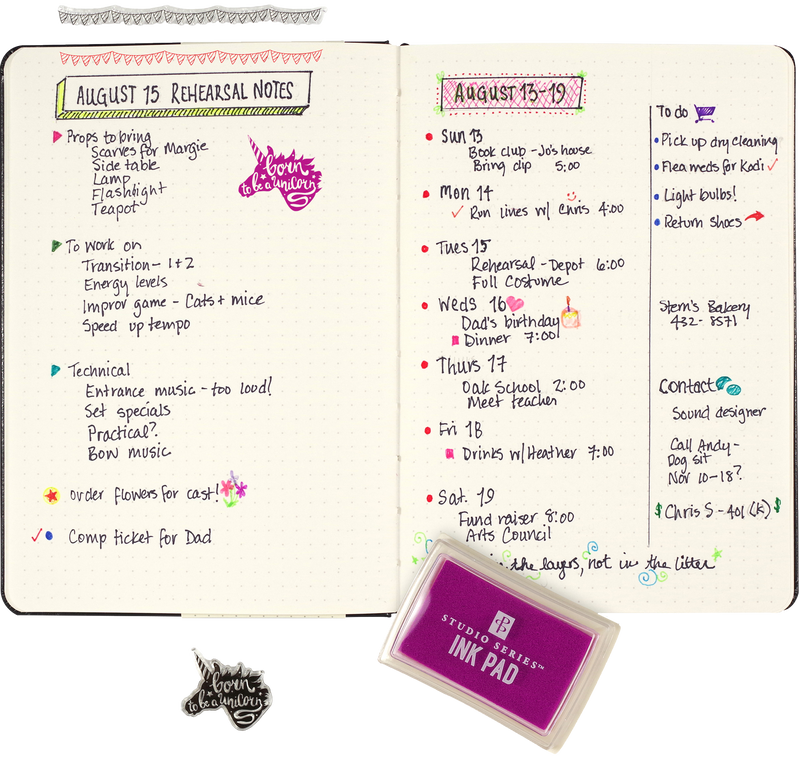 AUGUST 15 REHEARSAL NOTES
Props to bring
Scarves for Margie
Side table
Lamp
Flashlight
Teapot
born
to be a unicorn
To work on
Transition - 1+2
Energy levels
Improv game - Cats + mice
Speed up tempo
Technical
Entrance music - too loud!
Set specials
Practical?
Bow music
order flowers for cast!
Comp ticket for Dad
AUGUST 13-19
Sun 13
Book club - Jo's house
Bring dip 5:00
Mon 14
Run lines w/ Chris 4:00
Tues 15
Rehearsal - Depot 6:00
Full Costume
Weds 16
Dad's birthday
Dinner 7:00
Thurs 17
Oak School 2:00
Meet teacher
Fri 18
Drinks w/Heather 7:00
Sat. 19
Fund raiser 8:00
Arts Council
To do
Pick up dry cleaning
Flea meds for Kodi
Light bulbs!
Return shoes
Stern's Bakery
432-8571
Contact
Sound designer
Call Andy-
Dog sit
Nov 10-18?
$ Chris S - 401 (K) $
the layers, not in the litter
STUDIO SERIES™
INK PAD
born
to be a unicorn